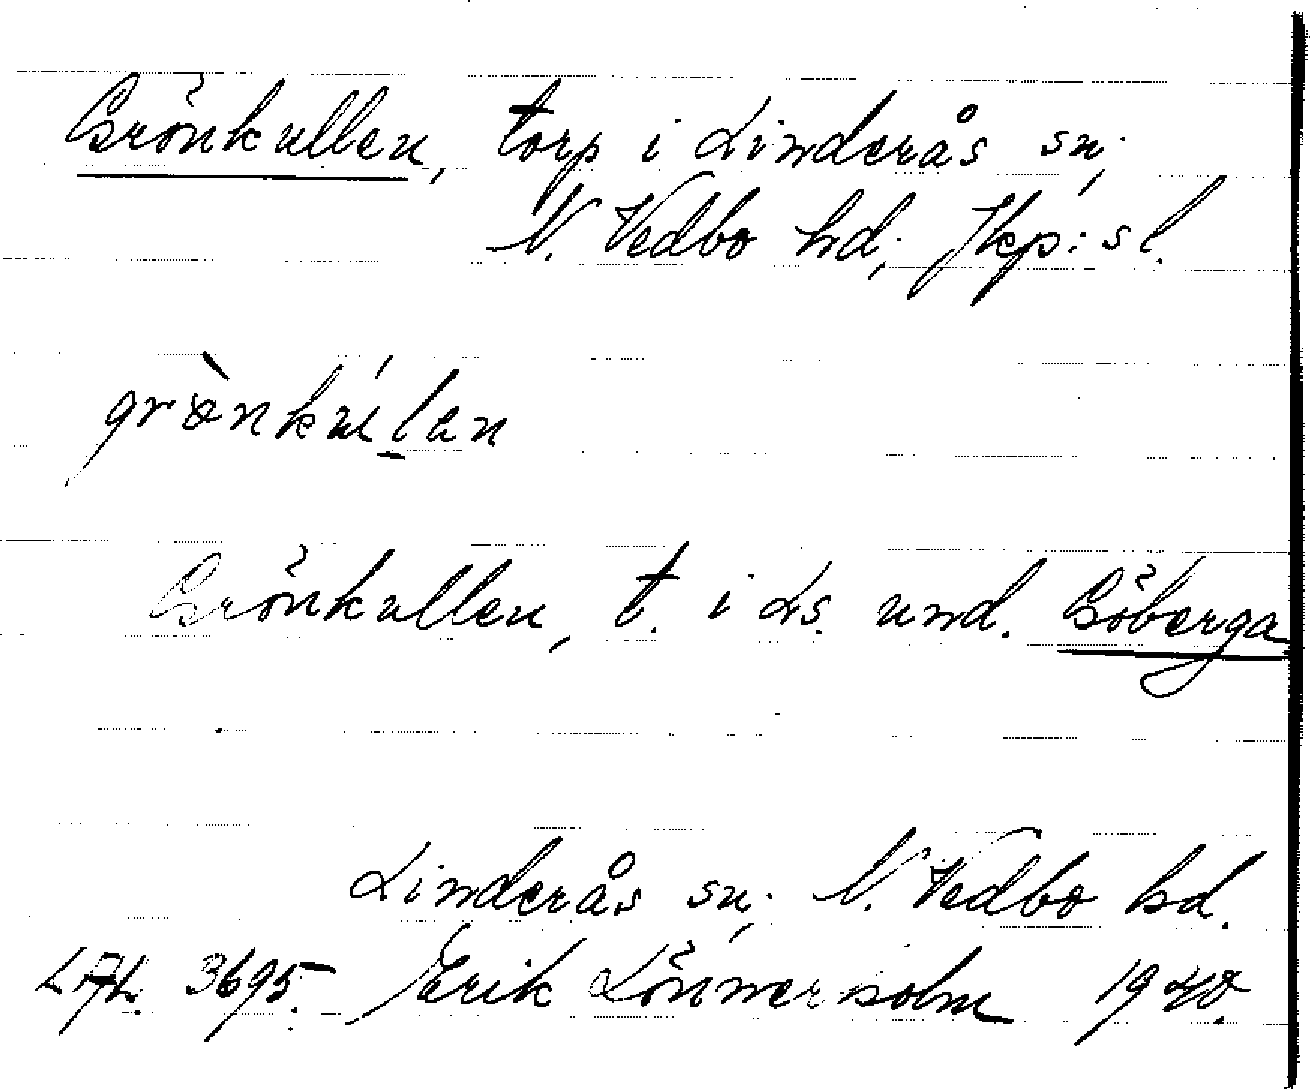 Grönkullen, torp i Linderås sn;
N. Vedbo hd; Jkp:s l.
grö̀nkúl̠an
Grönkullen, t. i Ls. und. Göberga
Linderås sn; N. Vedbo hd.
3695. Erik Lönnerholm 1940.